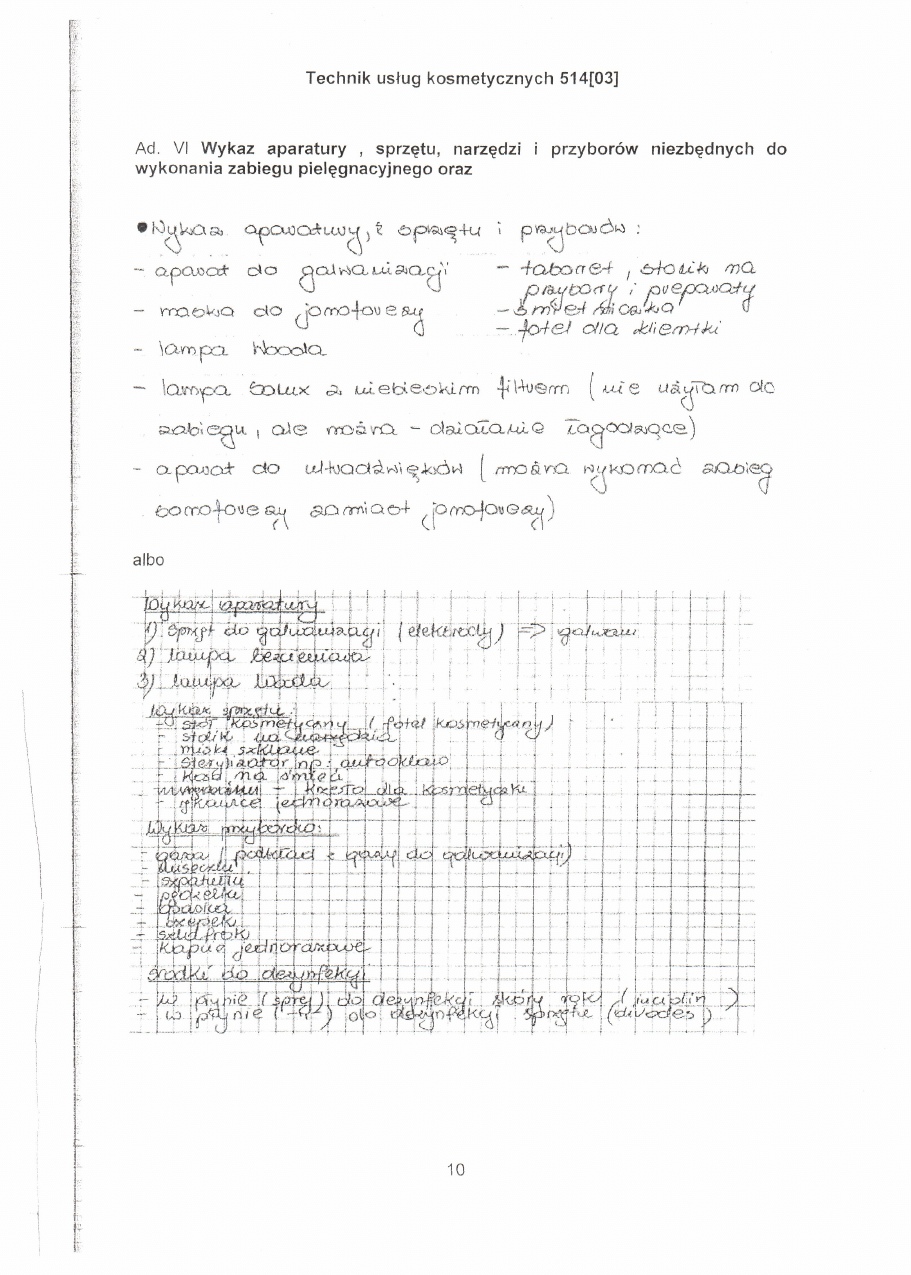 Technik usług kosmetycznych 514[03]
Ad. VI Wykaz aparatury , sprzętu, narzędzi i przyborów niezbędnych do
wykonania zabiegu pielęgnacyjnego oraz
• Wykaz aparatury, sprzętu i przyborów :
- aparat do galwanizacji
- maska do jonoforezy
- lampa Wooda
- taboret, stolik na
przybory i preparaty
- śmietniczka
- fotel dla klientki
- lampa Solux z niebieskim filtrem (nie użyłam do
zabiegu, ale można - działanie łagodzące)
- aparat do ultradźwięków (można wykonać zabieg
sonoforezy zamiast jonoforezy)
albo
Wykaz aparatury
1) Sprzęt do galwanizacji (elektrody) =>
2) lampa bezcieniowa
3) lampa Wooda
Wykaz sprzętu:
- stół kosmetyczny (fotel kosmetyczny)
- stolik na narzędzia
- miski szklane
- Sterylizator np: autoklaw
- Kosz na śmieci
- krzesło dla kosmetyczki
- rękawice jednorazowe
Wykaz przyborów:
- gaza (podkład z gazy do galwanizacji)
- szpatułki
- pędzelki
- opaska
- czepek
- szlafrok
- Kapcie jednorazowe
Środki do dezynfekcji
- w płynie (sprej) do dezynfekcji skóry rąk
- w płynie (-"-) do dezynfekcji sprzętu (divodes)
10